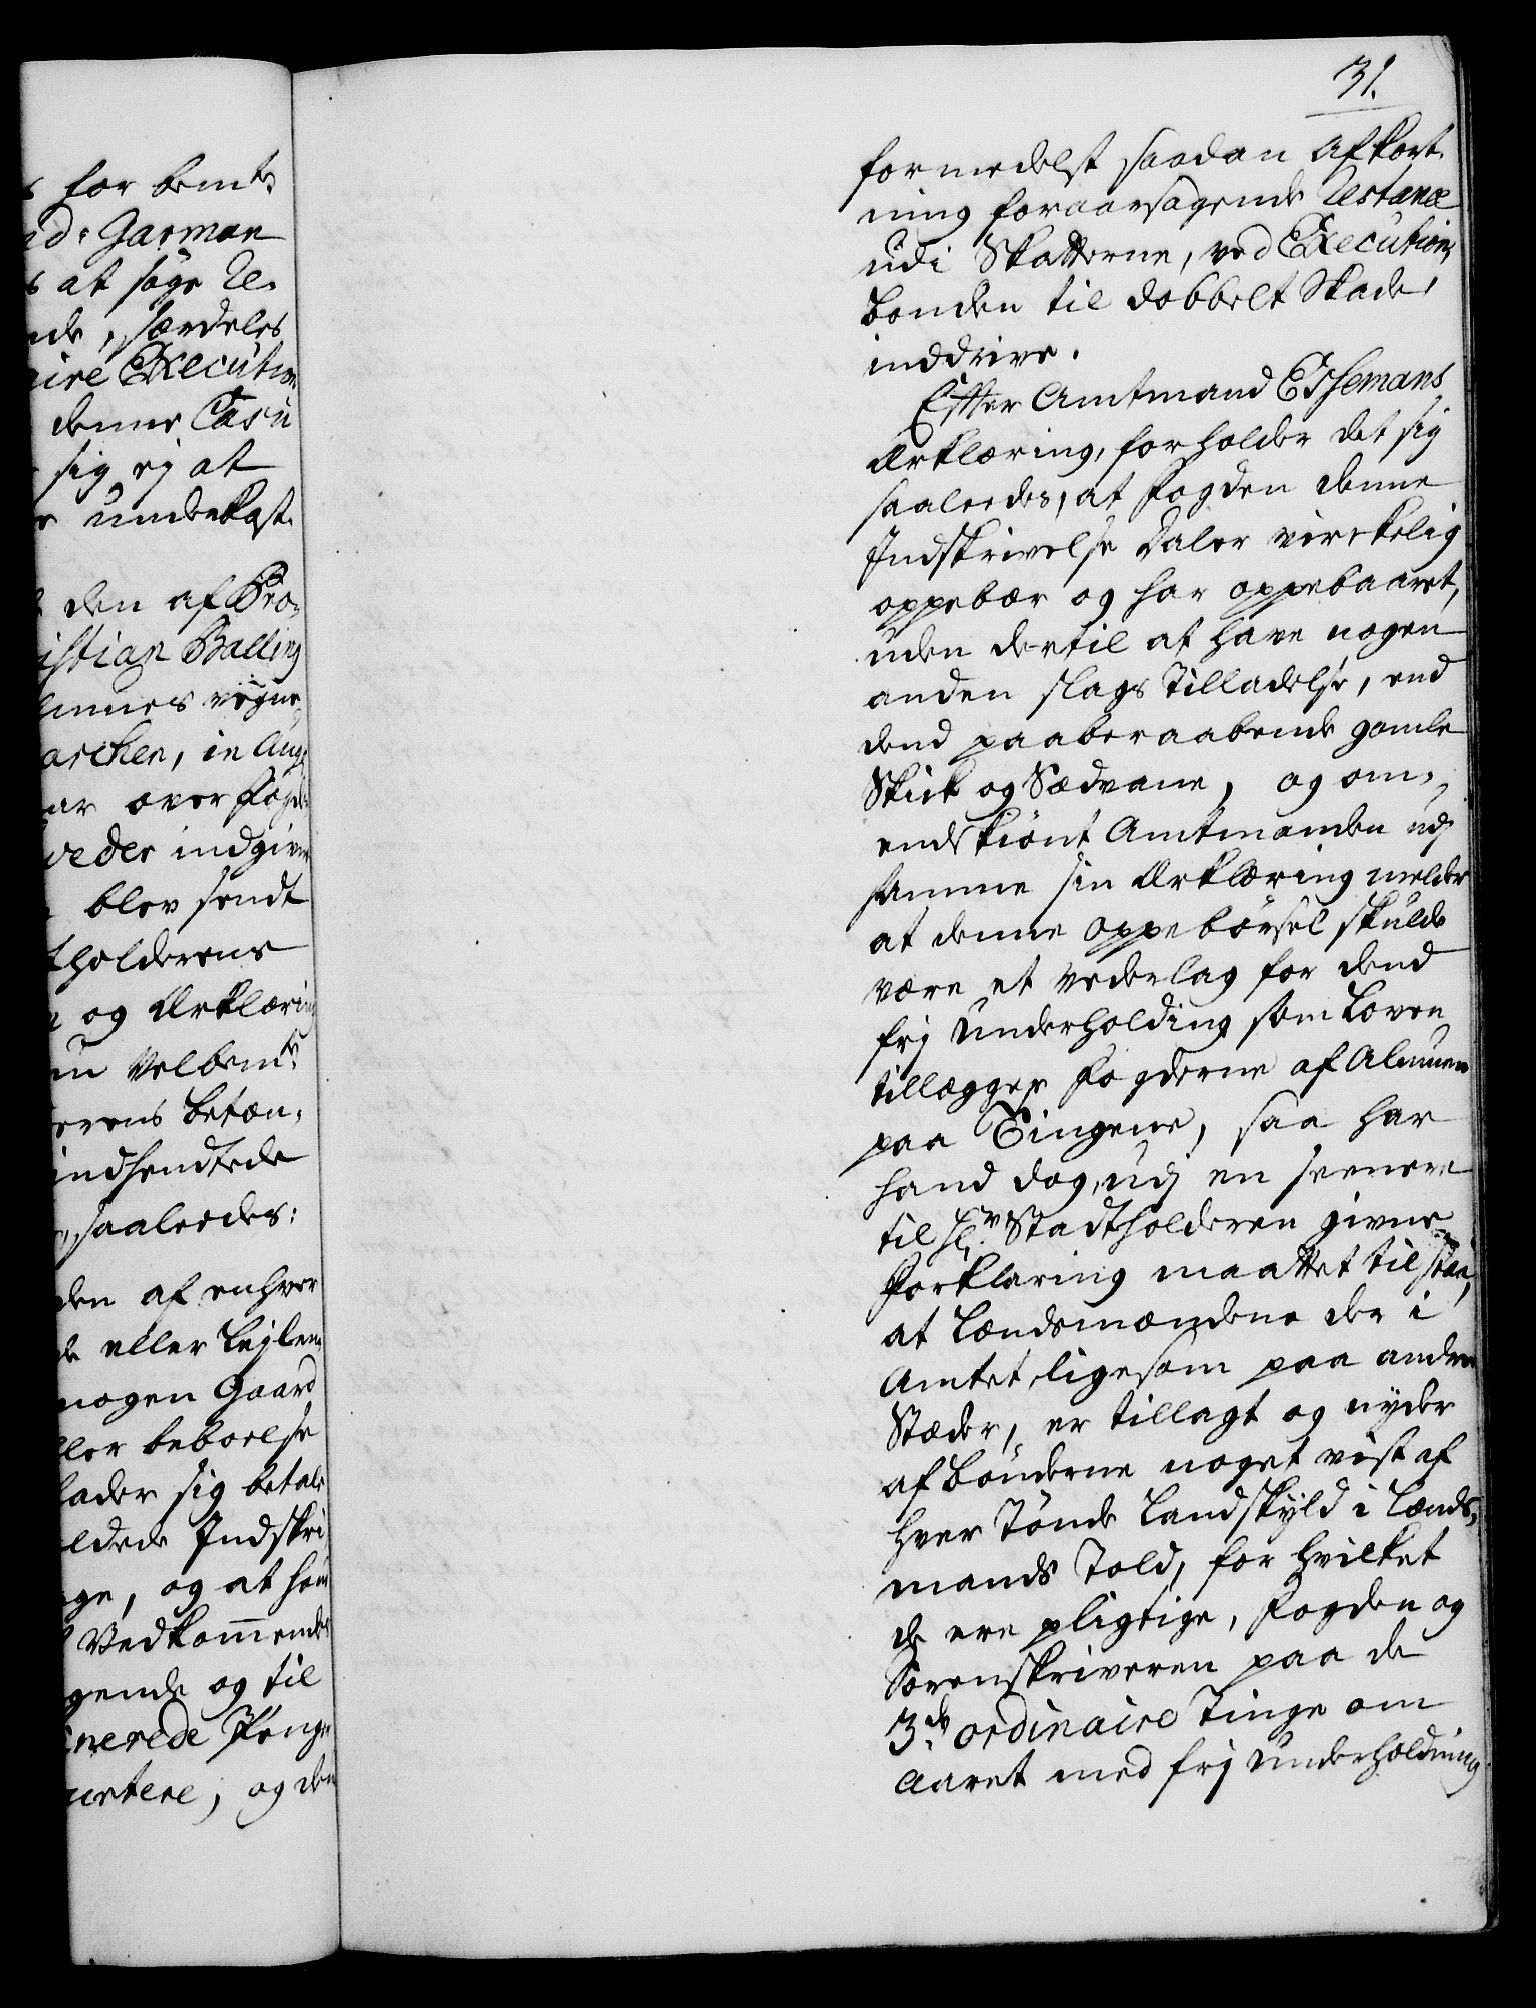 s for bemte
nd: Garman
s at søge Re-
nde, særdeles
aire Execution
denne Casu
sig ej at
r underkast-
den af Pro-
istian Balling
lmues vegne
archen, in Aug:
ar over fogd
veder indgivne
blev sendt
tholderens
og Erklæring
Velbemte
erens betæn-
indhendtede
saaledes:
den af enhver
de eller Lejlen
nogen Gaard
ller beboelse
lader sig betale
ldede Indskri
ge, og at hans
Vedkommende
gende og til
inerede Penge
urtere, og den
31.
formedelst saadan afkort-
ning foraarsagende Restance
udi Skatterne, ved Execution,
Bonden til dobbelt Skade,
inddrive.
Efter Amtmand Essemans
Erklæring, forholder det sig
saaledes, at Fogden denne
Indskrivelse Daler virkelig
oppebær og har oppebaaret,
uden dertil at have nogen
anden slags Tilladelse, end
dend paaberaabende gamle
Skik og Sædvane, og om-
endskiønt Amtmanden udj
samme sin Erklæring melder
at denne oppebørsel skulde
være et vederlag for dend
frj Underholding som Loven
tillægger Fogderne af Almuen
paa Tingene, saa har
hand dog, udj en seenere
til Hr. Stadtholderen givne
Forklaring maattet tilstaa,
at Lændsmændene der i
Amtet, ligesom paa andre
Stæder, er tillagt og nyder
af bønderne noget vist af
hver Tønde Landskyld i Lænds-
mands Told, for hvilket
de ere pligtige, Fogden og
Sorenskriveren paa de
3de ordinaire Tinge om
Aaret med frj Underholdning